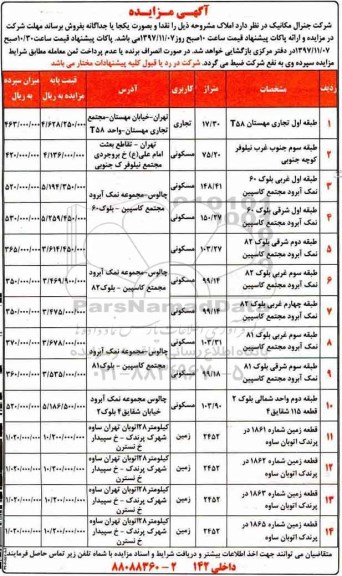 آگهی مزایده
شرکت جنرال مکانیک در نظر دارد املاک مشروحه ذیل را نقدا و بصورت یکجا یا جداگانه بفروش برساند مهلت شرکت
در مزایده و ارائه پاکات پیشنهاد قیمت ساعت ۱۰صبح روز ۱۳۹۷/۱۱/۰۷می باشد. پاکات پیشنهاد قیمت ساعت۱۰/۳۰صبح
۱۳۹۷/۱۱/۰۷در دفتر مرکزی بازگشایی خواهد شد. در صورت انصراف برنده یا عدم پرداخت ثمن معامله مطابق شرایط
مزایده سپرده وی به نفع شرکت ضبط می گردد. شرکت در رد یا قبول کلیه پیشنهادات مختار می باشد
ردیف مشخصات متراژ کاربری آدرس قیمت پایه مزایده به ریال میزان سپرده به ریال
۱ طبقه اول تجاری مهستان T۵۸ ۱۷/۳۰ تجاری تهران-خیابان مهستان-مجتمع تجاری مهستان-واحد T۵۸ ۴/۶۲۸/۲۵۰/۰۰۰ ۴۶۳/۰۰۰/۰۰۰
۲ طبقه سوم جنوب غرب نیلوفر کوچه جنوبی ۷۵/۲۰ مسکونی تهران - تقاطع بعثت امام علی(ع) خ بروجردی مجتمع نیلوفر ک جنوبی ۴/۱۳۶/۰۰۰/۰۰۰ ۴۲۰/۰۰۰/۰۰۰
۳ طبقه اول غربی بلوک ۶۰ نمک آبرود مجتمع کاسپین ۱۴۸/۴۱ مسکونی چالوس-مجموعه نمک آبرود مجتمع کاسپین - بلوک۶۰ ۵/۱۹۴/۳۵۰/۰۰۰ ۵۲۰/۰۰۰/۰۰۰
۴ طبقه اول شرقی بلوک ۶۰ نمک آبرود مجتمع کاسپین ۱۵۰/۲۷ مسکونی ۵/۲۵۹/۴۵۰/۰۰۰ ۵۳۰/۰۰۰/۰۰۰
۵ طبقه دوم شرقی بلوک ۸۲ نمک آبرود مجتمع کاسپین ۱۰۳/۲۷ مسکونی چالوس-مجموعه نمک آبرود مجتمع کاسپین - بلوک۸۲ ۳/۶۱۴/۴۵۰/۰۰۰ ۳۶۵/۰۰۰/۰۰۰
۶ طبقه سوم غربی بلوک ۸۲ نمک آبرود مجتمع کاسپین ۹۹/۱۴ مسکونی ۳/۴۶۹/۹۰۰/۰۰۰ ۳۵۰/۰۰۰/۰۰۰
۷ طبقه چهارم غربی بلوک ۸۲ نمک آبرود مجتمع کاسپین ۹۹/۱۴ مسکونی ۳/۴۷۵/۰۰۰/۰۰۰ ۳۵۰/۰۰۰/۰۰۰
۸ طبقه سوم غربی بلوک ۸۱ نمک آبرود مجتمع کاسپین ۱۰۳/۳۱ مسکونی چالوس-مجموعه نمک آبرود مجتمع کاسپین - بلوک۸۱ ۳/۶۷۸/۰۰۰/۰۰۰ ۳۷۰/۰۰۰/۰۰۰
۹ طبقه سوم شرقی بلوک ۸۱ نمک آبرود مجتمع کاسپین ۹۹/۱۸ مسکونی ۳/۵۳۵/۰۰۰/۰۰۰ ۳۶۰/۰۰۰/۰۰۰
۱۰ طبقه دوم واحد شمالی بلوک ۲ قطعه ۱۱۵ شقایق۴ ۱۰۳/۹۰ مسکونی چالوس-مجموعه نمک آبرود خیابان شقایق۴ بلوک۲ ۵/۱۸۶/۵۰۰/۰۰۰ ۵۲۰/۰۰۰/۰۰۰
۱۱ قطعه زمین شماره ۱۸۶۱ در پرندک اتوبان ساوه ۲۴۵۲ زمین کیلومتر۲۸اتوبان تهران ساوه شهرک پرندک - خ سپیدار خ نسترن ۱۰/۲۰۰/۰۰۰/۰۰۰ ۱/۰۲۰/۰۰۰/۰۰۰
۱۲ قطعه زمین شماره ۱۸۶۲ در پرندک اتوبان ساوه ۲۴۵۲ زمین کیلومتر۲۸اتوبان تهران ساوه شهرک پرندک - خ سپیدار خ نسترن ۱۰/۲۰۰/۰۰۰/۰۰۰ ۱/۰۲۰/۰۰۰/۰۰۰
۱۳ قطعه زمین شماره ۱۸۶۳ در پرندک اتوبان ساوه ۲۴۵۲ زمین کیلومتر۲۸اتوبان تهران ساوه شهرک پرندک - خ سپیدار خ نسترن ۱۰/۲۰۰/۰۰۰/۰۰۰ ۱/۰۲۰/۰۰۰/۰۰۰
۱۴ قطعه زمین شماره ۱۸۶۵ در پرندک اتوبان ساوه ۲۴۵۲ زمین کیلومتر۲۸اتوبان تهران ساوه شهرک پرندک - خ سپیدار خ نسترن ۱۰/۲۰۰/۰۰۰/۰۰۰ ۱/۰۲۰/۰۰۰/۰۰۰
متقاضیان می توانند جهت اخذ اطلاعات بیشتر و دریافت شرایط و اسناد مزایده با شماره تلفن زیر تماس حاصل فرمایند.
۲ - ۸۸۰۸۸۳۶۰ داخلی ۱۴۲